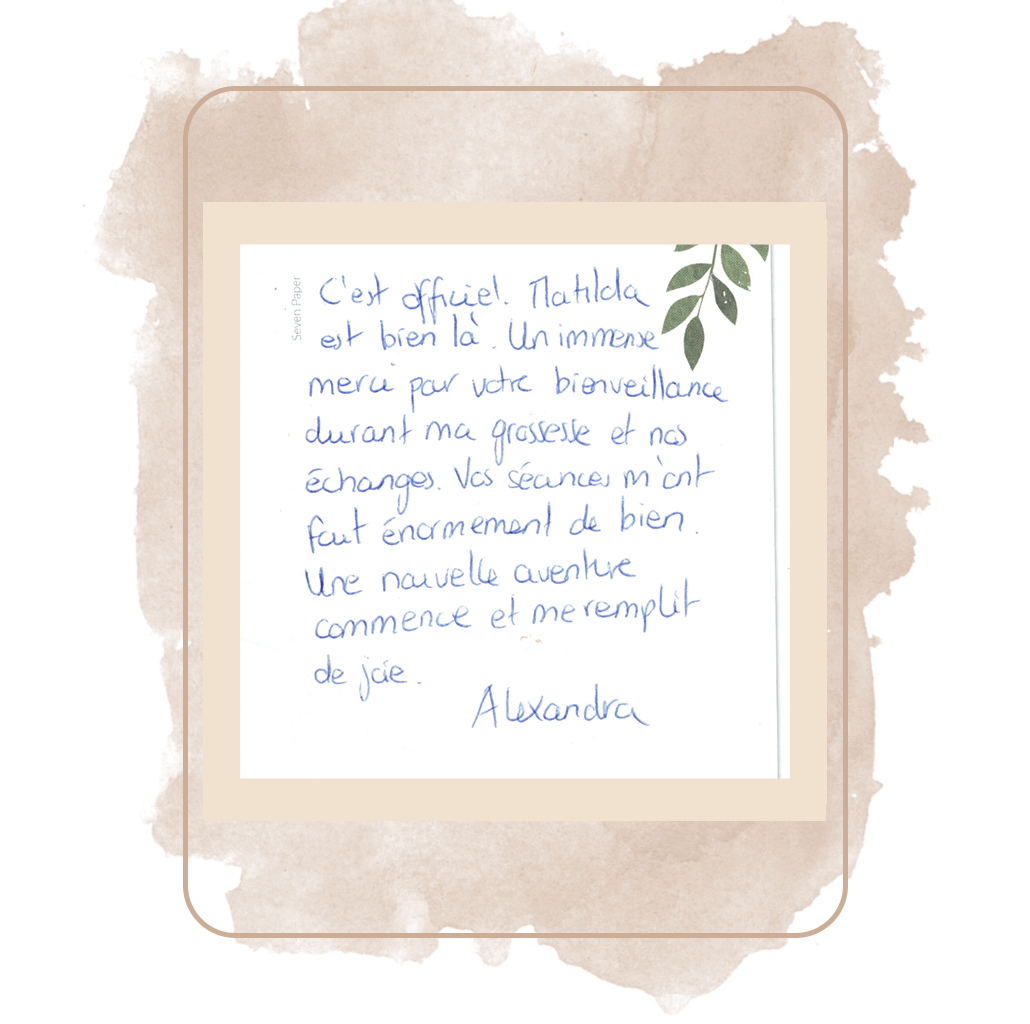 Seven Paper
C'est officiel. Matilda
est bien là. Un immense
merci par votre bienveillance
durant ma grossesse et nos
échanges. Vos séances m'ont
fait énormement de bien.
Une nouvelle aventure
commence et me remplit
de joie.
Alexandra